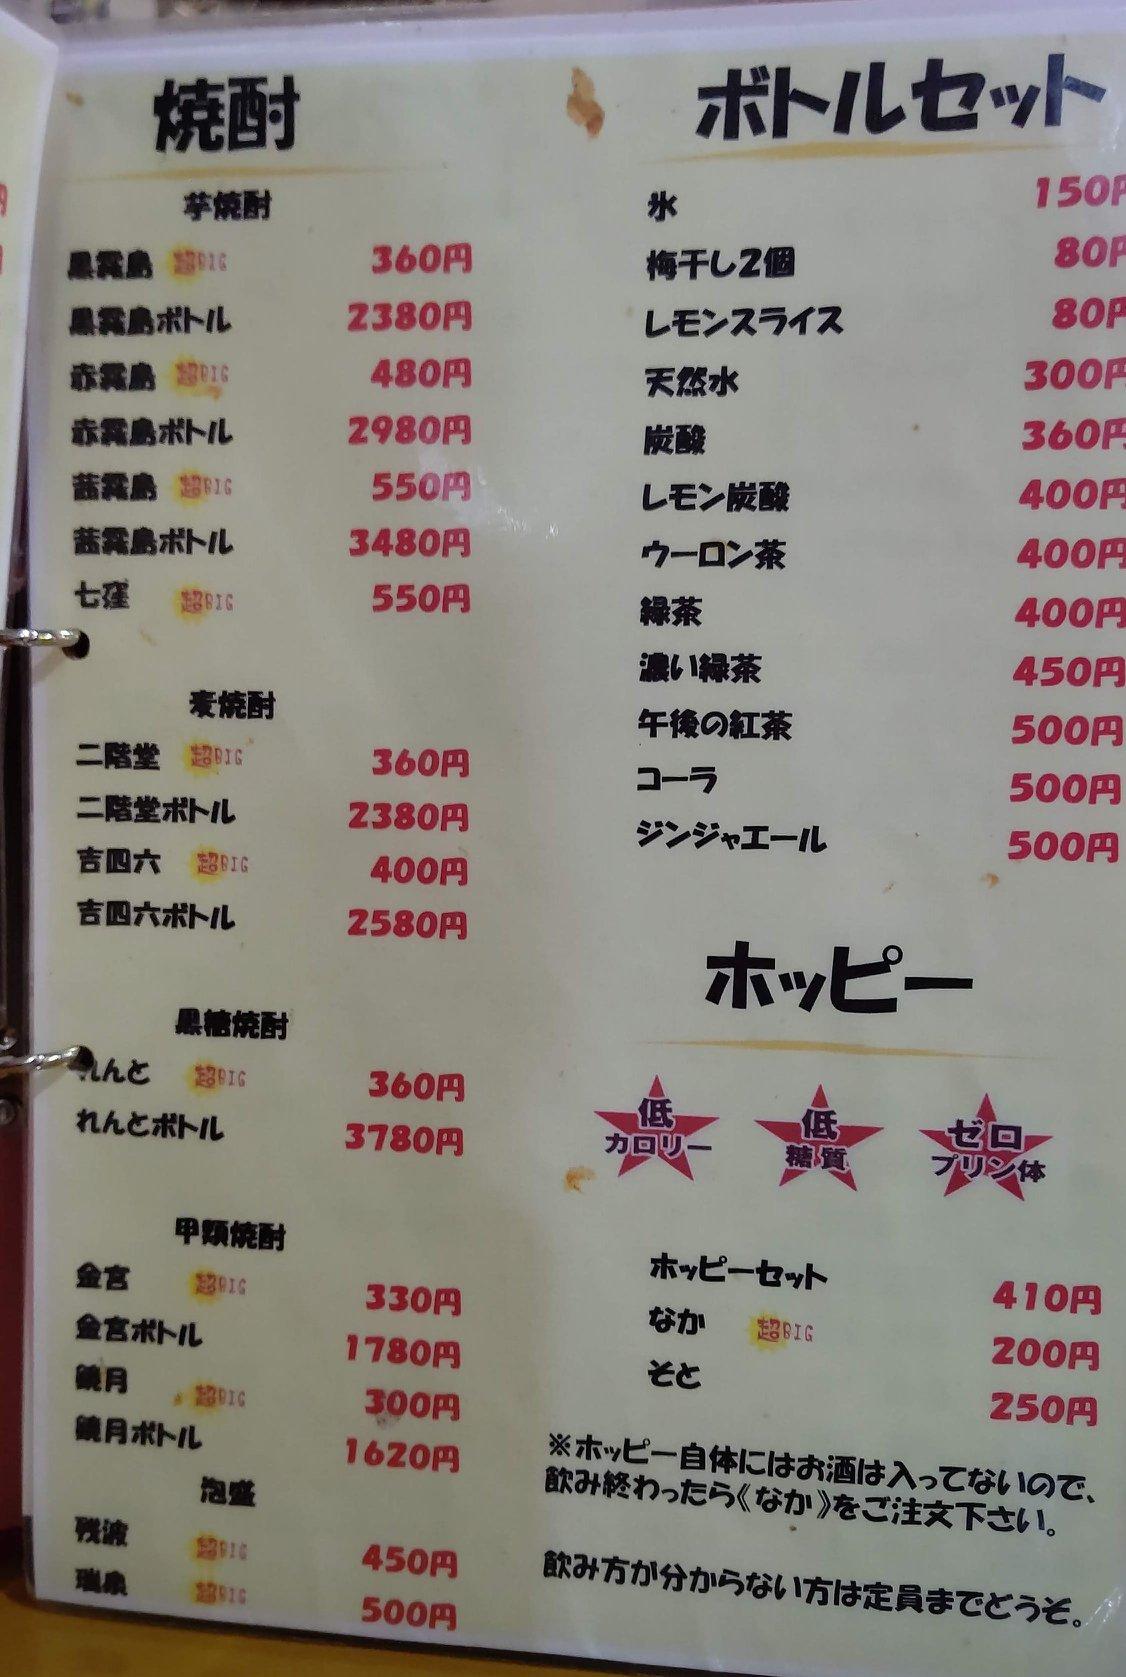 焼酎
芋焼酎
黒霧島 超BIG 360円
黒霧島ボトル 2380円
赤霧島 超BIG 480円
赤霧島ボトル 2980円
茜霧島 超BIG 550円
茜霧島ボトル 3480円
七窪 超BIG 550円
麦焼酎
二階堂 超BIG 360円
二階堂ボトル 2380円
吉四六 超BIG 400円
吉四六ボトル 2580円
黒糖焼酎
れんと 超BIG 360円
れんとボトル 3780円
甲類焼酎
金宮 超BIG 330円
金宮ボトル 1780円
鏡月 超BIG 300円
鏡月ボトル 1620円
泡盛
残波 超BIG 450円
瑞泉 超BIG 500円
ボトルセット
氷 150円
梅干し2個 80円
レモンスライス 80円
天然水 300円
炭酸 360円
レモン炭酸 400円
ウーロン茶 400円
緑茶 400円
濃い緑茶 450円
午後の紅茶 500円
コーラ 500円
ジンジャエール 500円
ホッピー
低カロリー 低糖質 ゼロプリン体
ホッピーセット 410円
なか 超BIG 200円
そと 250円
※ホッピー自体にはお酒は入ってないので、
飲み終わったら《なか》をご注文下さい。
飲み方が分からない方は定員までどうぞ。